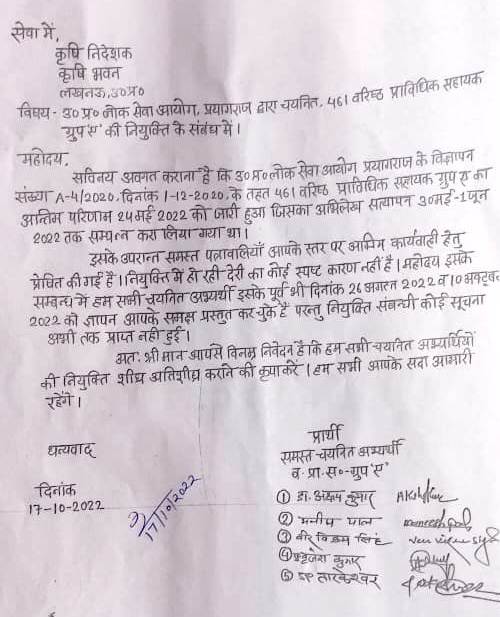 सेवा में,
कृषि निदेशक
कृषि भवन
लखनऊ, उ०प्र०
विषय - उ० प्र० लोक सेवा आयोग, प्रयागराज द्वारा चयनित, 461 वरिष्ठ प्राविधिक सहायक
ग्रुप 'ए' की नियुक्ति के संबंध में ।
महोदय,
सविनय अवगत कराना है कि उ०प्र० लोक सेवा आयोग प्रयागराज के विज्ञापन
संख्या A-4/2020, दिनांक 1-12-2020, के तहत 461 वरिष्ठ प्राविधिक सहायक ग्रुप ए का
अन्तिम परिणाम 24 मई 2022 को जारी हुआ जिसका अभिलेख सत्यापन 30 मई - 1 जून
2022 तक सम्पन्न करा लिया गया था ।
इसके उपरान्त समस्त पत्रावालियाँ आपके स्तर पर अग्रिम कार्यवाही हेतु
प्रेषित की गई है । नियुक्ति में हो रही देरी का कोई स्पष्ट कारण नहीं है । महोदय इसके
सम्बन्ध में हम सभी चयनित अभ्यर्थी इसके पूर्व भी दिनांक 26 अगस्त 2022 व 10 अक्टूबर
2022 को ज्ञापन आपके समक्ष प्रस्तुत कर चुके हैं परन्तु नियुक्ति संबन्धी कोई सूचना
अभी तक प्राप्त नहीं हुई ।
अतः श्रीमान आपसे विनम्र निवेदन है कि हम सभी चयनित अभ्यर्थियों
की नियुक्ति शीघ्र अतिशीघ्र कराने की कृपा करें । हम सभी आपके सदा आभारी
रहेंगे ।
धन्यवाद
दिनांक
17-10-2022
17/10/2022
प्रार्थी
समस्त चयनित अभ्यर्थी
व. प्रा. स०-ग्रुप 'ए'
① डा. अक्षय कुमार
② मनीष पाल
③ वीर विक्रम सिंह
④ कुमार
⑤ SP तारकेश्वर